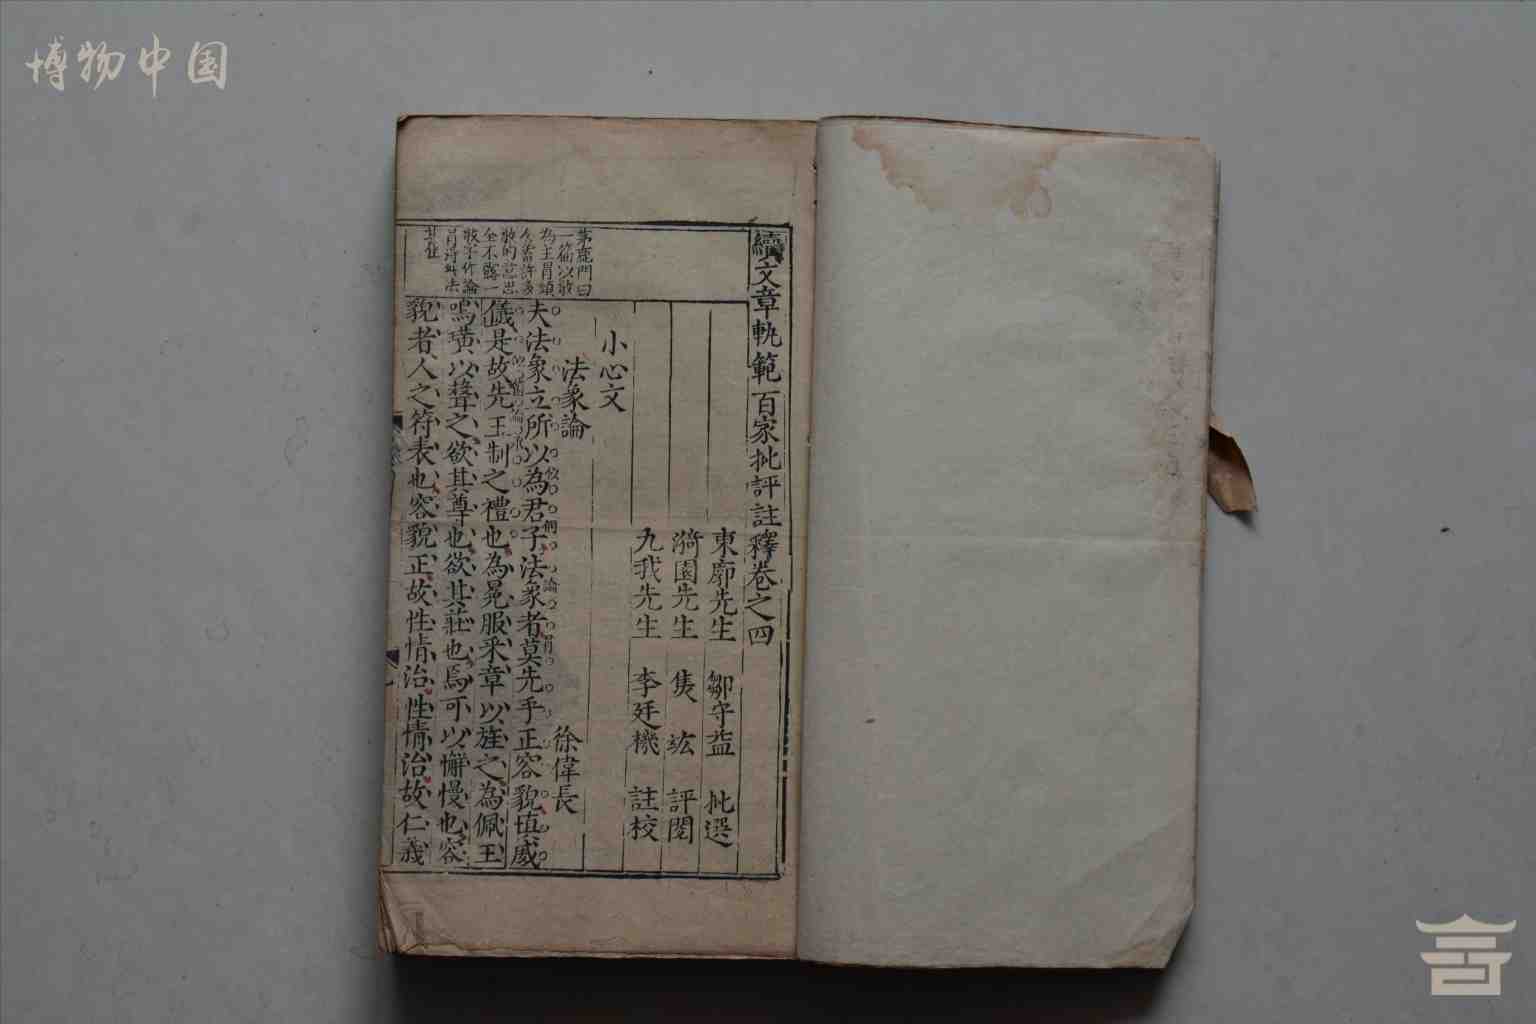 博物中国
續文章軌範百家批評註釋卷之四
東廓先生 鄒守益 批選
漪園先生 焦竑 評閱
九我先生 李廷機 註校
小心文
法象論 徐偉長
夫法象立所以為君子法象者莫先乎正容貌慎威
儀是故先王制之禮也為冕服采章以旌之為佩玉
鳴璜以聲之欲其尊也欲其莊也焉可以懈慢也容
貌者人之符表也容貌正故性情治性情治故仁義
茅鹿門曰
一篇以敬
為主冒頭
全不露一
敬字作論